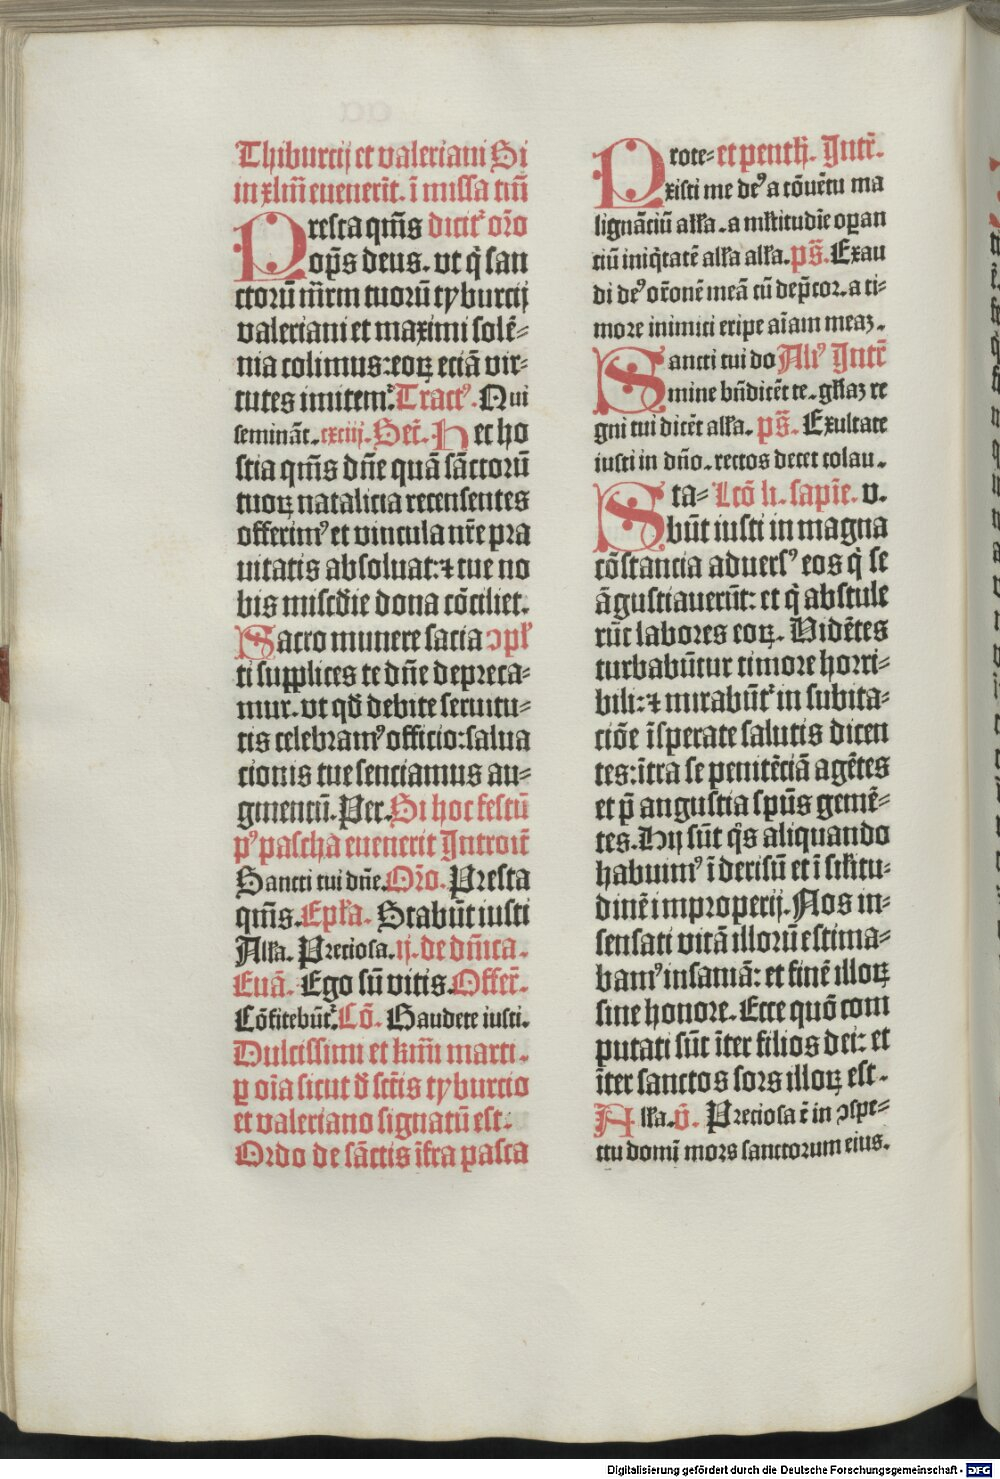 Thiburcij et valeriani Si
in xlma euenerit. ī missa tm̄
Presta qm̄s dicit᷑ or̄o
op̄s deus. vt q̇ san
ctorū mr̄m tuorū tyburcij
valeriani et maximi solē⸗
nia colimus: eoꝝ eciā vir⸗
tutes imitem᷑. Tractꝰ. Qui
semināt. cxciij. Secr̄. Hec ho
stia qm̄s dn̄e quā sāctorū
tuoꝝ natalicia recensentes
offerimꝰ et vincula nr̄e pra
uitatis absoluat: ⁊ tue no
bis mis̄cdie dona cōciliet.
Sacro munere sacia ↄpl̄
ti supplices te dn̄e depreca⸗
mur. vt qd̄ debite seruitu⸗
tis celebramꝰ officio: salua
cionis tue senciamus au⸗
gmentū. Per. Si hoc festū
pꝰ pascha euenerit Introit̄
Sancti tui dn̄e. Or̄o. Presta
qm̄s. Ep̄la. Stabūt iusti
All̄a. Preciosa. ij. de dn̄ica.
Euā. Ego sū vitis. Offer̄.
Cōfitebūt᷑. Cō. Gaudete iusti.
Dulcissimi et
ꝑ oīa sicut d̄ sctīs tyburcio
et valeriano signatū est:
Ordo de sāctis īfra pasca
Prote⸗ et pent̄. Intr̄.
xisti me deꝰ a cōuētu ma
lignāciū all̄a. a ml̄titudīe oꝑan
ciū iniq̇tatē all̄a all̄a. ps̄. Exau
di deꝰ or̄onē meā cū dep̄cor. a ti⸗
more inimici eripe aīam meaꝫ.
Sancti tui do Aliꝰ Intr̄
mine bn̄dicēt te. gl̄iaꝫ re
gni tui dicēt all̄a. ps̄. Exultate
iusti in dn̄o. rectos decet colau.
Sta⸗ Lcō li. sapīe. v.
būt iusti in magna
cōstancia aduersꝰ eos q̇ se
āgustiauerūt: et q̇ abstule
rūt labores eoꝝ. Vidētes
turbabūtur timore horri⸗
bili: ⁊ mirabūt᷑ in subita⸗
ciōe īsperate salutis dicen
tes: ītra se penitēciā agētes
et p̄ angustia spūs gemē⸗
tes. Hij sūt q̇s aliquando
habuimꝰ ī derisū et ī sil̄itu⸗
dinē improperij. Nos in⸗
sensati vitā illorū estima⸗
bamꝰ insaniā: et finē illoꝝ
sine honore. Ecce quō com
putati sūt īter filios dei: et
īter sanctos sors illoꝝ est.
All̄a. v̄. Preciosa ē in ↄspe⸗
ctu domī mors sanctorum eius.
Digitalisierung gefördert durch die Deutsche Forschungsgemeinschaft - DFG